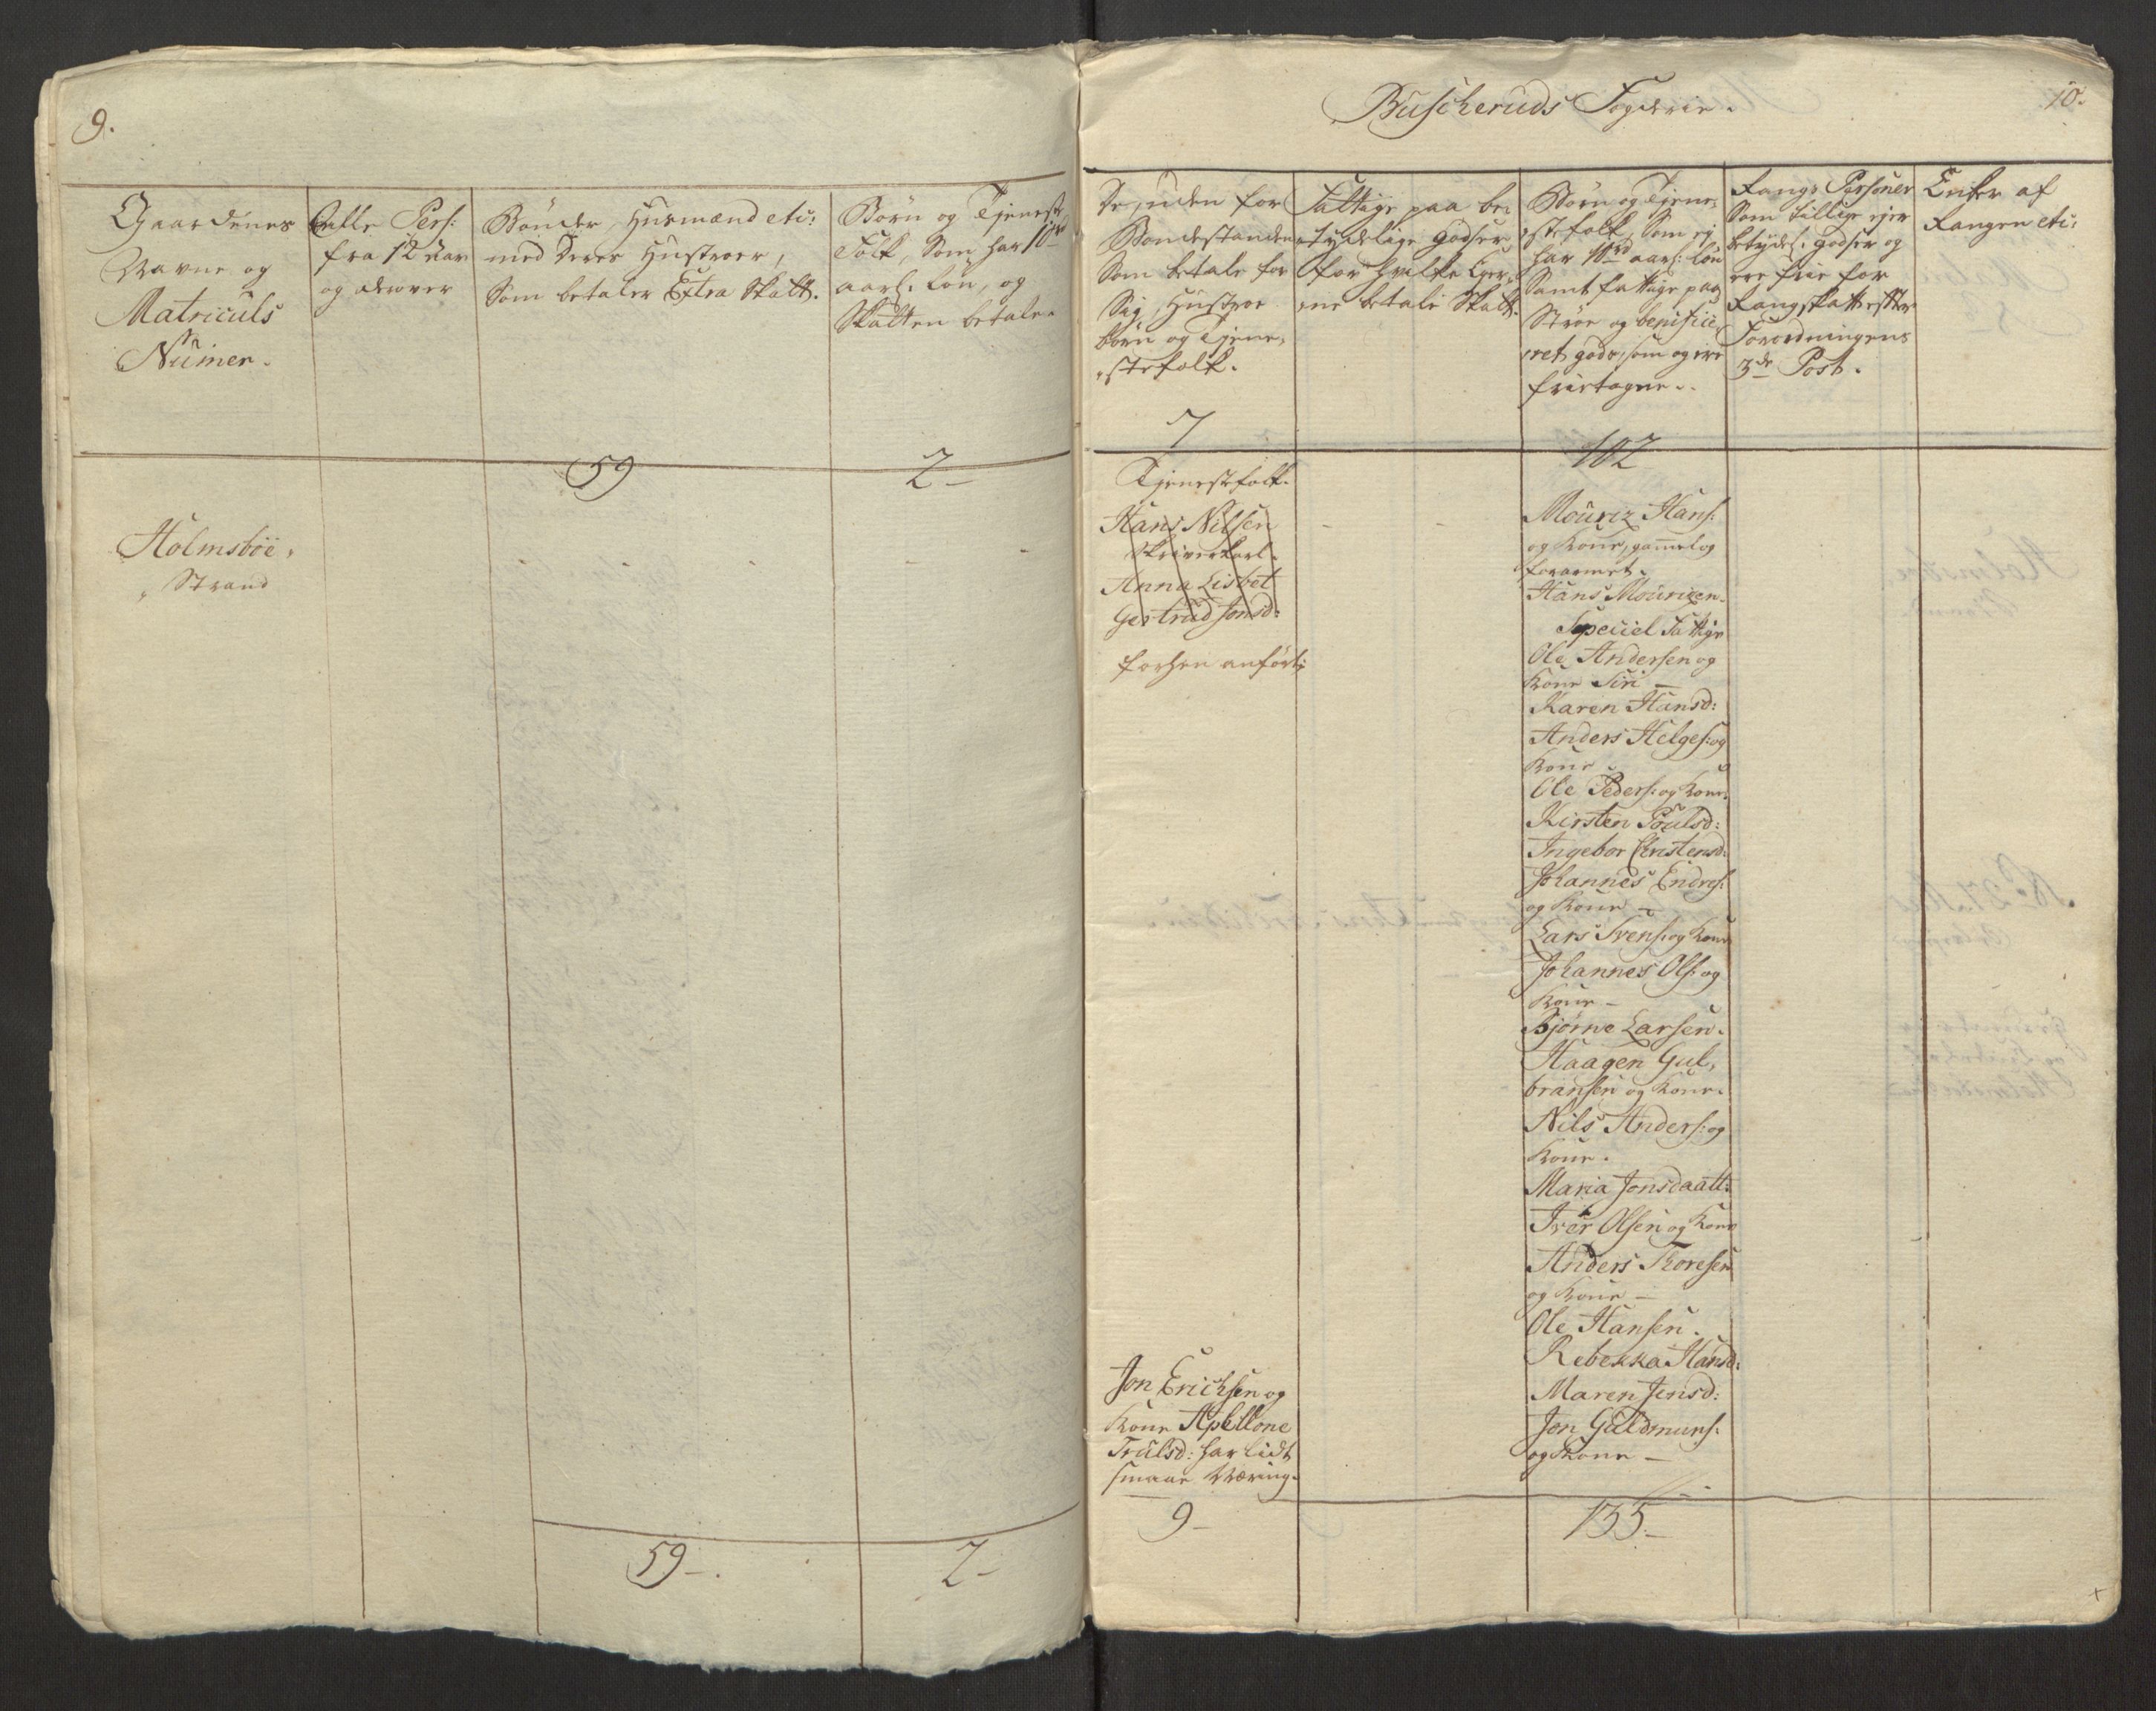 9.
Gaardenes
Navne og
Matriculs
Numer.
Alle Pers:
fra 12 Aar
og derover
Bönder, Husmænd etc:
med deres Hustroer,
Som betaler Extra Skatt.
Börn og Tjeneste
Folk, Som har 10 rd
aarl: Lön, og
Skatten betale.
59
2 –
Holmsböe,
Strand
59 –.
2 –
Buscheruds Fogderie.
10.
De, uden for
Bondestanden
Som betale for
Sig, Hustroe
börn og Tjene,
stefolk.
7
Fattige paa be,
tydelige Godser
for hvilke Ejer,
ne betale Skatt.
Börn og Tjene,
stefolk, Som ej
har 10 rd aarl: lön
Samt fattige paa
Ströe og benificie,
ret gods, som og ere
fritagne..
102
Rangs Personer
Som tillige ejer
betydel: godser og
ere frie for
Rangskatt efter
Forordningens
3de Post.
Enker af
Rangen etc:
Tjenestefolk.
Hans Nilsen
Skriverkarl.
Anna Lisbet
Gertrud Jonsd:
forhen anfört:
Jon Erichsen og
Kone Apellone
Trulsd: har lidt
smaae Næring.
9 –
Mouriz Hans:
og Kone, gamel og
forarmet.
Hans Mourizen.
Speciel Fattige
Ole Andersen og
Kone Siri –
Karen Hansd:
Anders Helges: og
Kone –
Ole Peders: og Kone.
Kirsten Poulsd:
Ingebor Christensd:
Johannes Endres:
og Kone –
Lars Svens: og Kone
Johannes Ols: og
Kone –
Bjørne Larsen.
Haagen Gul,
bransen og Kone.
Nils Anders: og
Kone.
Maria Jonsdaatt:
Iver Olsen og Kone
Anders Thoresen
og Kone –
Ole Hansen.
Rebekka Hansd:
Maren Jensd:
Jon Guldmuns:
og Kone –
135.–